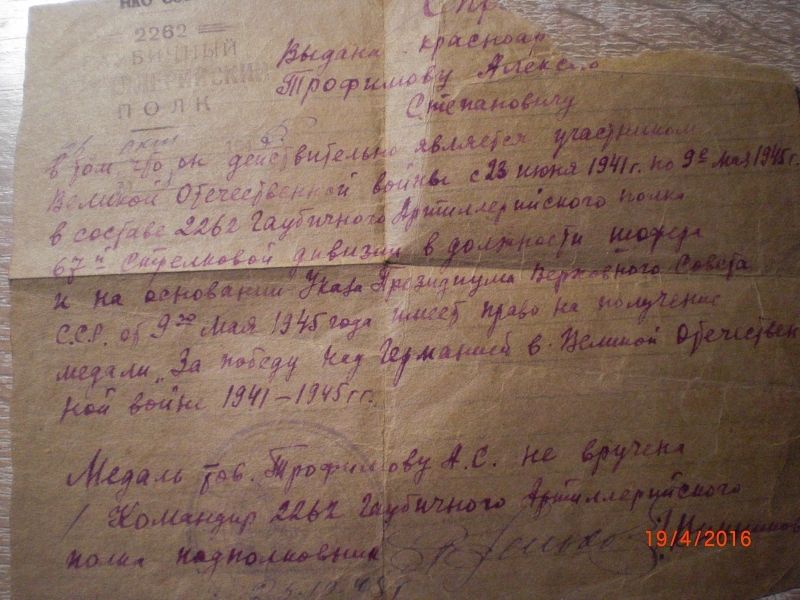 НКО
2262
ГАУБИЧНЫЙ
АРТИЛЛЕРИЙСКИЙ
ПОЛК
Спр
Выдана красноар
Трофимову Алекса
Степановичу
в том, что он действительно является участником
Великой Отечественной войны с 23 июня 1941 г. по 9е мая 1945 г.
в составе 2262 Гаубичного Артиллерийского полка
67й Стрелковой дивизии в должности шофера
и на основании Указа Президиума Верховного Совета
С.С.Р. от 9го Мая 1945 года имеет право на получение
медали „За победу над Германией в Великой Отечествен
ной войне 1941 – 1945 гг.
Медаль тов. Трофимову А.С. не вручена
/ Командир 2262 Гаубичного Артиллерийского
полка подполковник
19/4/2016